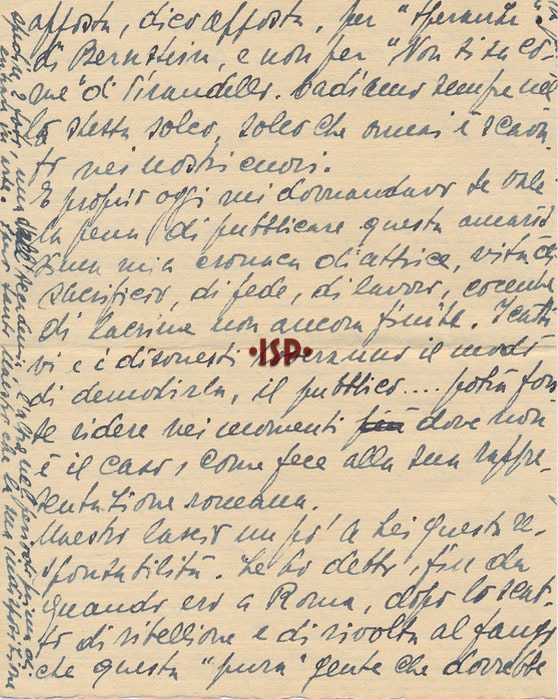 apposta, dico apposta, per "Speranza"
di Bernstein, e non per "Non si sa co-
me" di Pirandello. Cadiamo sempre nel
lo stesso solco, solco che ormai è scava-
to nei nostri cuori.
E proprio oggi mi domandavo se vale
la pena di pubblicare questa amaris
sima mia cronaca di attrice, vita di
sacrificio, di fede, di lavoro, cocente
di lacrime non ancora finite. I catti
vi e i disonesti troveranno il modo
di demolirla, il pubblico.... potrà for
se ridere nei momenti più dove non
è il caso, come fece alla sua rappre-
sentazione romana.
Maestro lascio un po' a Lei questa re-
sponsabilità. Le ho detto, fin da
quando ero a Roma, dopo lo scat-
to di ribellione e di rivolta al fango
che questa "pura" gente che dovrebbe
ISP